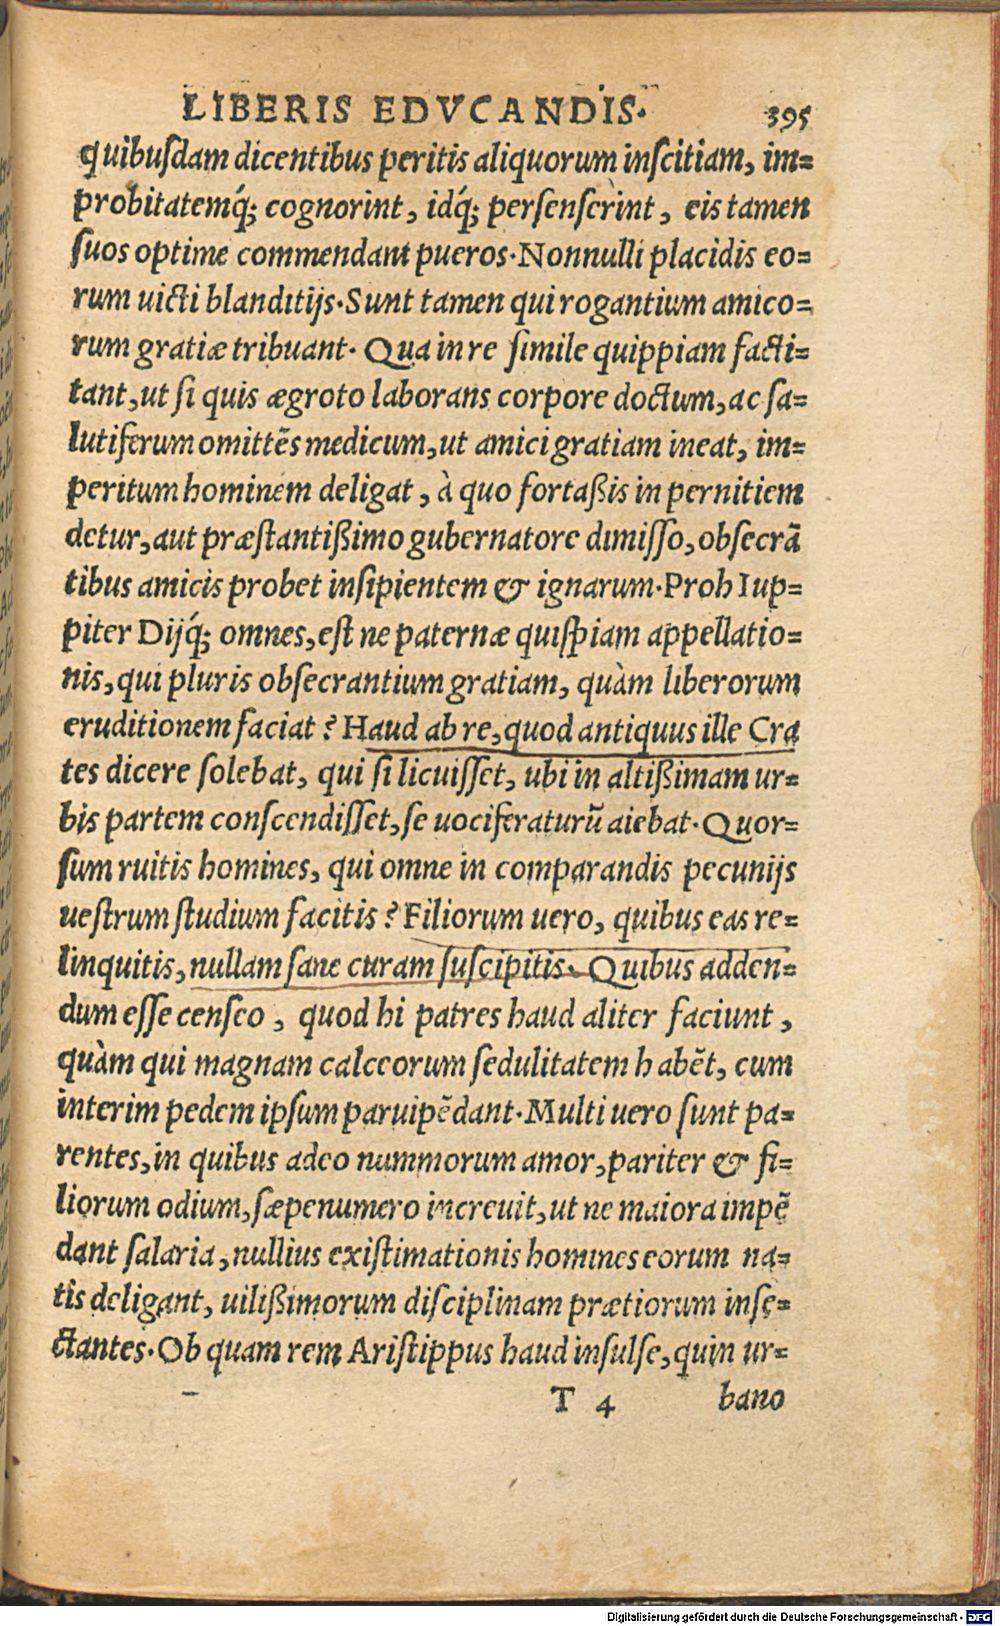 LIBERIS EDVCANDIS. 395
quibuſdam dicentibus peritis aliquorum inſcitiam, im=
probitatemq́; cognorint, idq́; perſenſerint, eis tamen
ſuos optime commendant pueros. Nonnulli placidis eo=
rum uicti blanditijs. Sunt tamen qui rogantium amico=
rum gratiæ tribuant. Qua in re ſimile quippiam facti=
tant, ut ſi quis ægroto laborans corpore doctum, ac ſa=
lutiferum omittẽs medicum, ut amici gratiam ineat, im=
peritum hominem deligat, à quo fortaßis in pernitiem
detur, aut præſtantißimo gubernatore dimiſſo, obſecrã
tibus amicis probet inſipientem & ignarum. Proh Iup=
piter Dijq́; omnes, eſt ne paternæ quiſpiam appellatio=
nis, qui pluris obſecrantium gratiam, quàm liberorum
eruditionem faciat? Haud ab re, quod antiquus ille Cra
tes dicere ſolebat, qui ſi licuiſſet, ubi in altißimam ur=
bis partem conſcendiſſet, ſe uociferaturũ aiebat. Quor=
ſum ruitis homines, qui omne in comparandis pecunijs
ueſtrum ſtudium facitis? Filiorum uero, quibus eas re=
linquitis, nullam ſane curam ſuſcipitis. Quibus adden=
dum eſſe cenſeo, quod hi patres haud aliter faciunt,
quàm qui magnam calceorum ſedulitatem habẽt, cum
interim pedem ipſum paruipẽdant. Multi uero ſunt pa=
rentes, in quibus adeo nummorum amor, pariter & fi=
liorum odium, ſæpenumero increuit, ut ne maiora impẽ
dant ſalaria, nullius exiſtimationis homines eorum na=
tis deligant, uilißimorum diſciplinam prætiorum inſe=
ctantes. Ob quam rem Ariſtippus haud inſulſe, quin ur=
T 4 bano
Digitalisierung gefördert durch die Deutsche Forschungsgemeinschaft - DFG